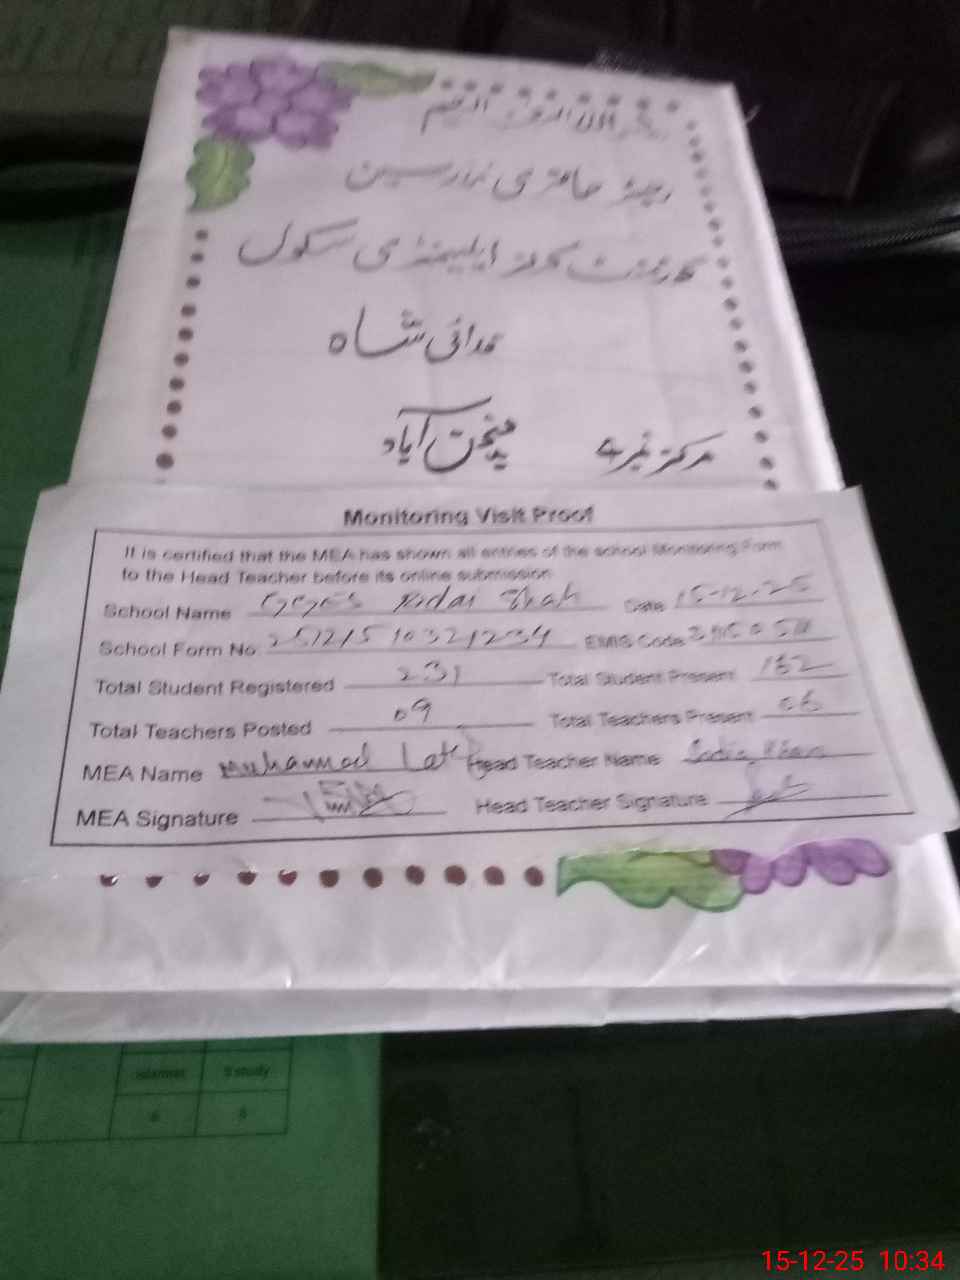 بسم اللہ الرحمن الرحیم
رجسٹر حاضری مدرسین
گورنمنٹ گرلز ایلیمنٹری سکول
شاہ
مرکز نمبر 4 منچن آباد
Monitoring Visit Proof
It is certified that the MEA has shown all entries of the school Monitoring Form
to the Head Teacher before its online submission
School Name Shah Date 15-12-25
School Form No. EMIS Code
Total Student Registered 231 Total Student Present 182
Total Teachers Posted 09 Total Teachers Present 06
MEA Name Muhammad Head Teacher Name Sadia Khan
MEA Signature Head Teacher Signature
islamiat S study
15-12-25 10:34